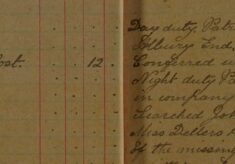 ost. 12
Day duty, Patr
Albury End,
Conferred w
Night duty, Pa
in company
Searched Joh
Miss Dellers
of the missin